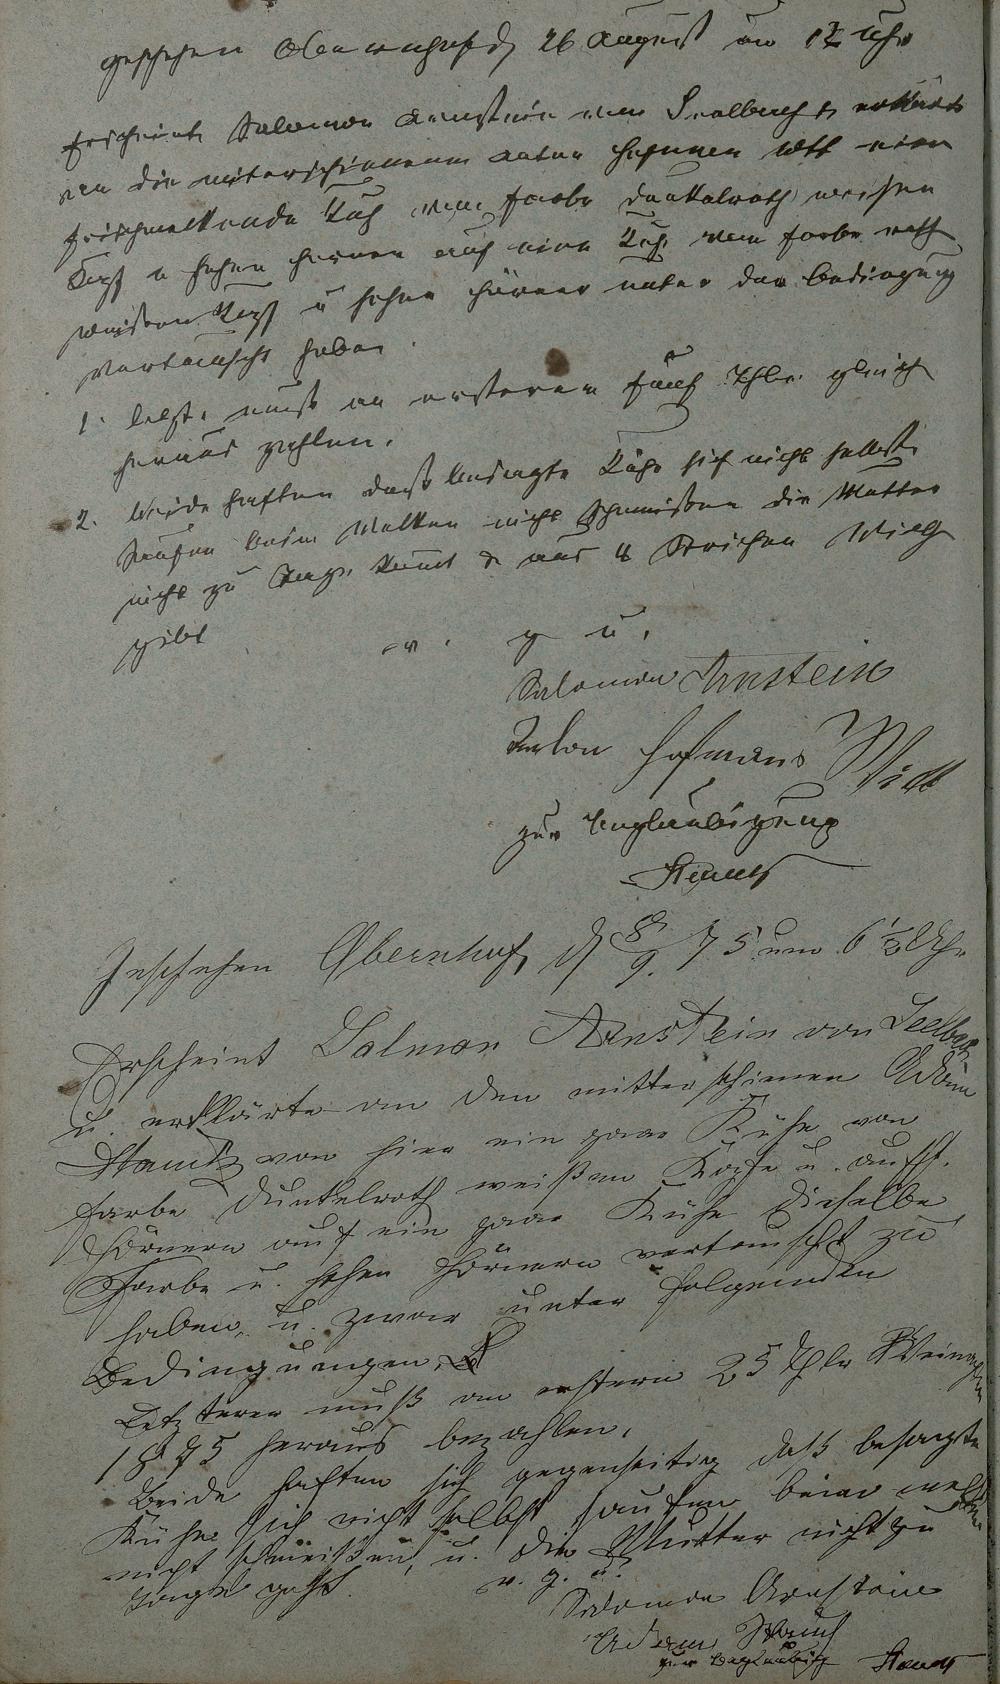 geschehen Obernhof d 26 August um 12 Uhr
Erscheint Salomon Arnstein von Seelbach u erklärte
an die miterschienenen Anton Hofmann Wtt eine
frischmelkende Kuh von Farbe dunkelroth weisen
Kopf u hohen Hörner auf eine Kuh von Farbe roth
weisen Kopf u hohen Hörner unter der Bedingung
vertauscht haben.
1. letzt. muß an ersteren fünf Thlr. gleich
heraus zahlen.
2. Beide haften daß besagte Kühe sich nicht selbst
saufen beim Melken nicht schmeißen die Mutter
nicht zu Tage kömt u aus 4 Strichen Milch
gibt
v. g. u.
Salomon Arnstein
Anton Hofmans Witt
zur Beglaubigung
Geschehen Obernhof, d 8/9. 75 um 6 1/2 Uhr
Erscheint Salmon Arnstein von Seelbach
u. erklärte an den mitterschienen Adam
von hier ein paar Kühe von
Farbe dunkelroth weißen Köpfe u. aufst.
Hörnern auf ein paar Kühe dieselbe
Farbe u. hohen Hörnern vertauscht zu
haben, u. zwar unter folgenden
Bedingungen.
Letzterer muß an erstern 25 Thlr
1875 heraus bezahlen.
Beide haften sich gegenseitig daß besagte
Kühe sich nicht selbst saufen beim melken
nicht schmeißen, u. die Mutter nicht zu
Tage geht.
v. g. u.
Salomon Arnstein
Adam
zur Beglaubig